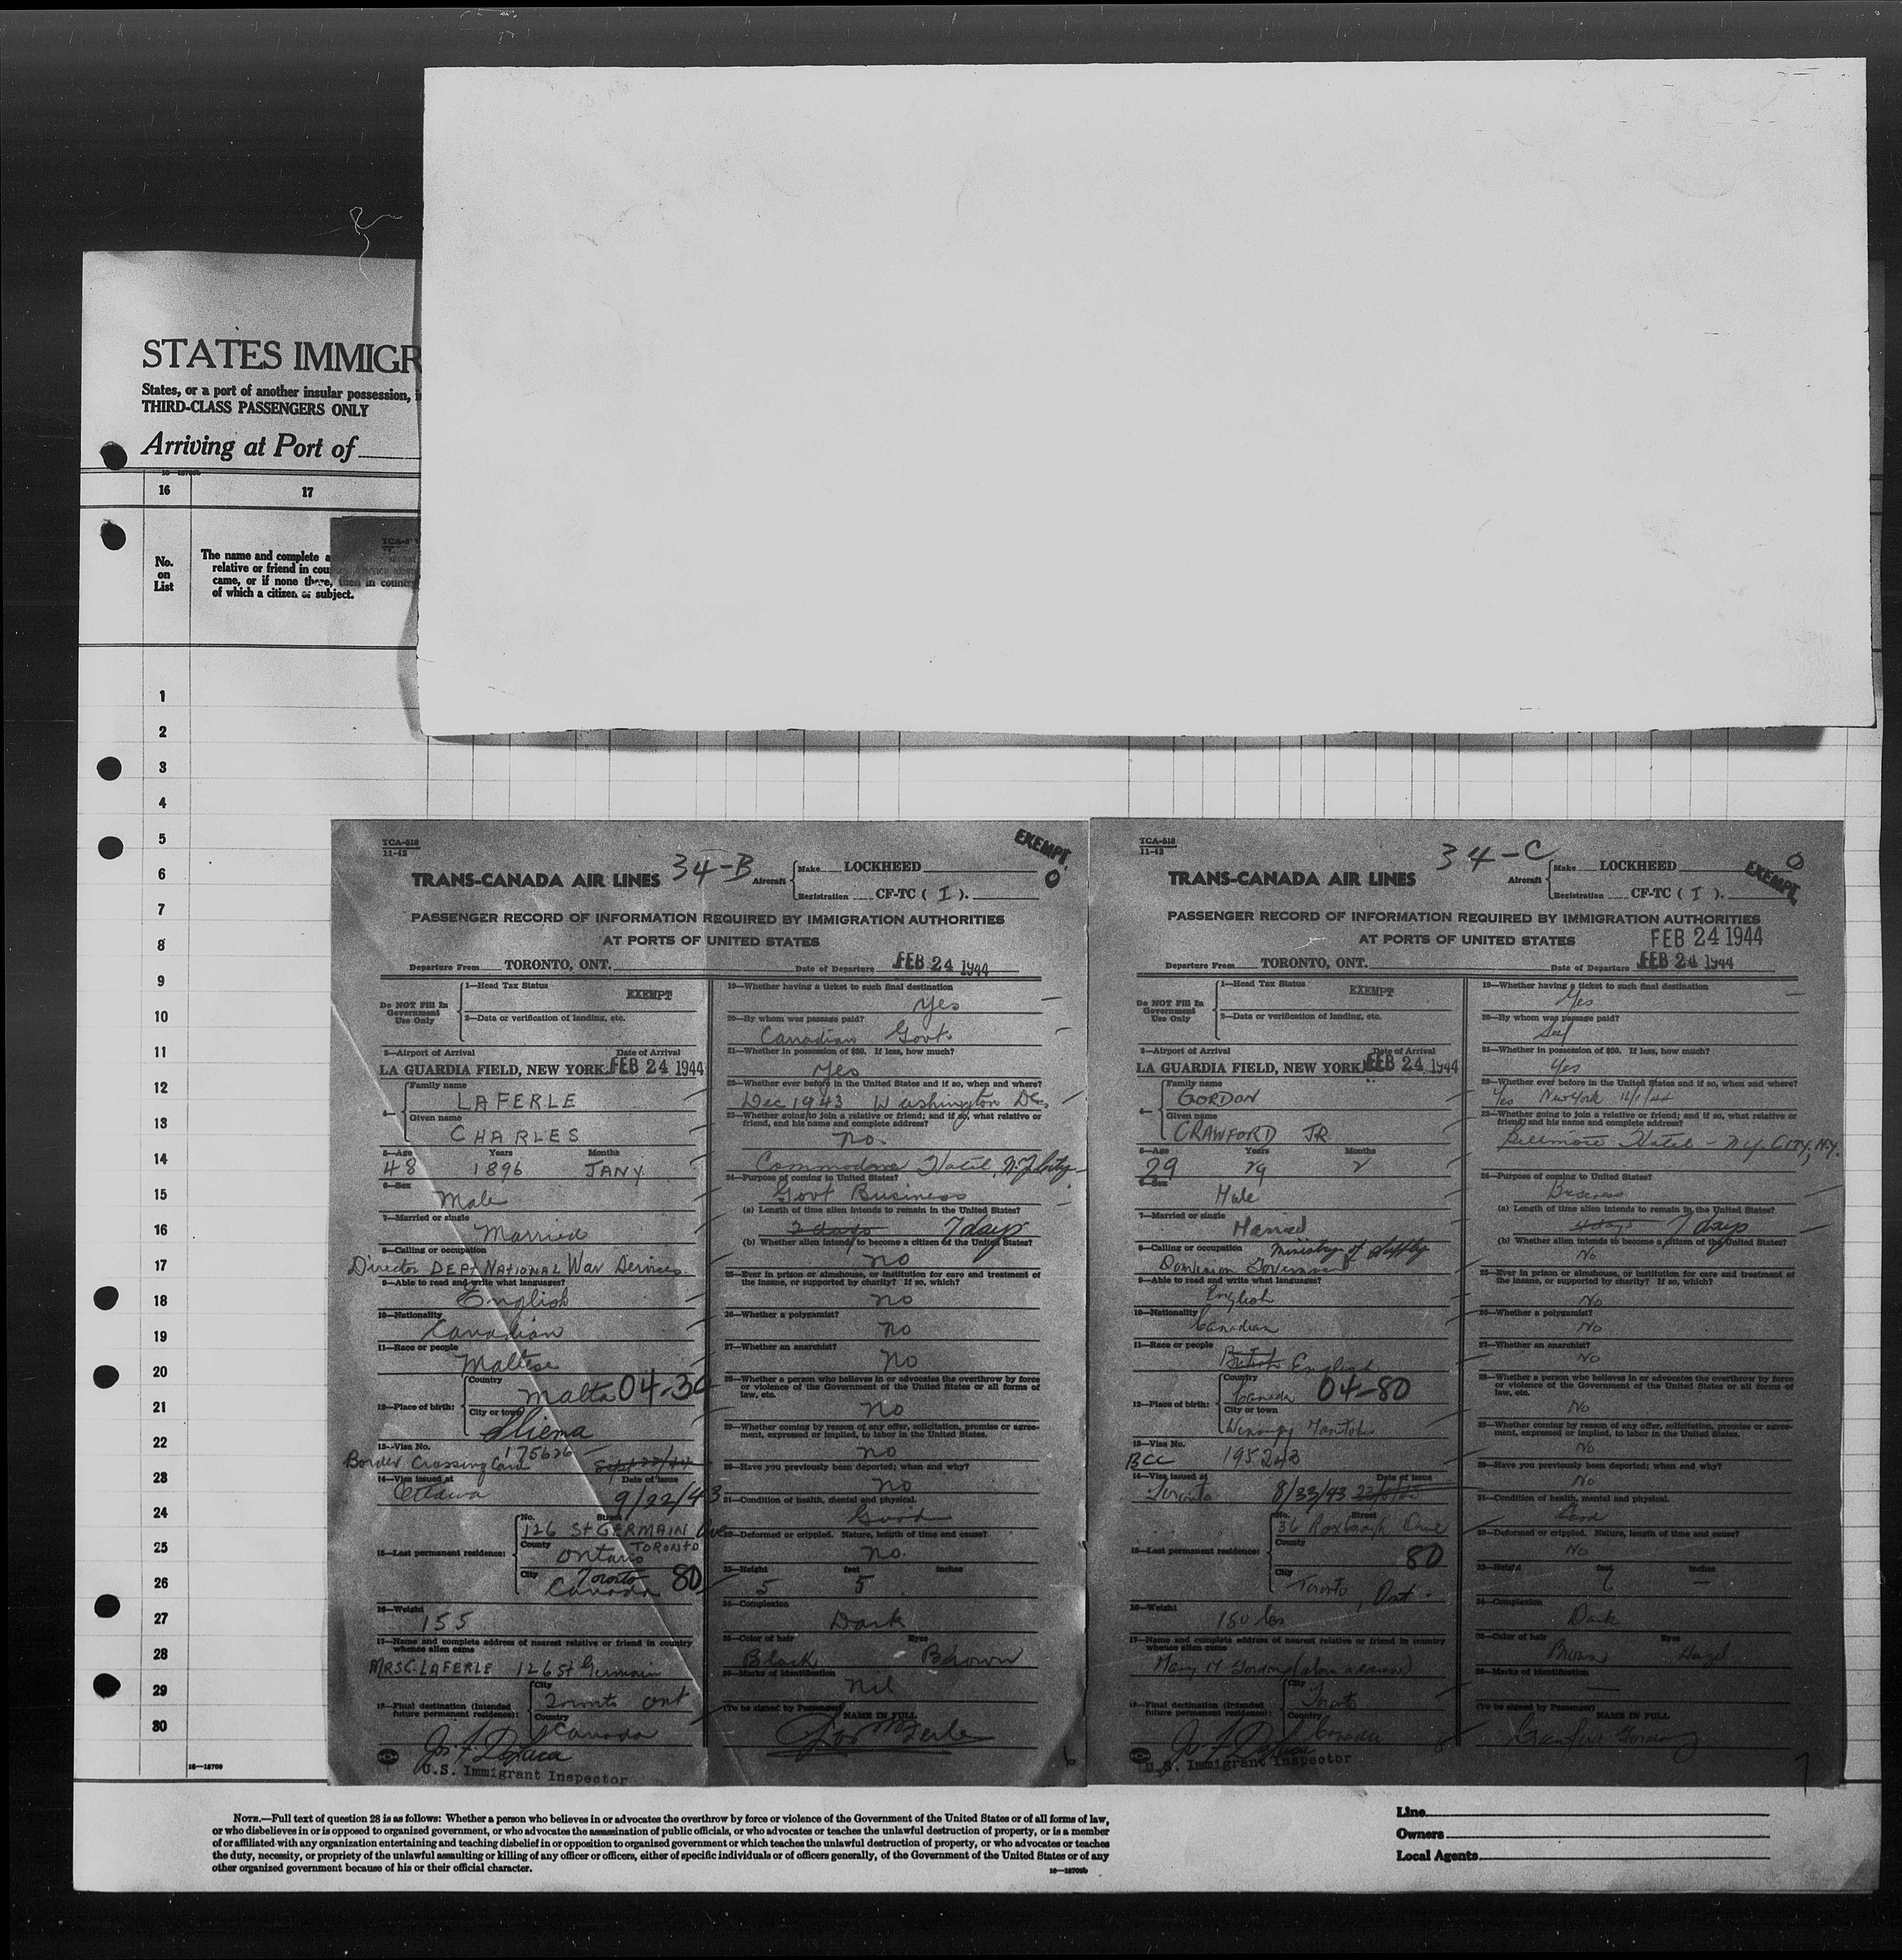 STATES IMMIGR
States, or a port of another insular possession,
THIRD-CLASS PASSENGERS ONLY
Arriving at Port of
16
17
No.
on
List
The name and complete a
relative or friend in cou
came, or if none there, then in country
of which a citizen or subject.
1
2
3
4
5
6
7
8
9
10
11
12
13
14
15
16
17
18
19
20
21
22
23
24
25
26
27
28
29
30
TCA-518
11-42
34-B
EXEMPT
0
TRANS-CANADA AIR LINES
Aircraft
Make LOCKHEED
Registration CF-TC ( I ).
PASSENGER RECORD OF INFORMATION REQUIRED BY IMMIGRATION AUTHORITIES
AT PORTS OF UNITED STATES
Departure From TORONTO, ONT.
Date of Departure FEB 24 1944
Do NOT Fill In
Government
Use Only
1—Head Tax Status
EXEMPT
2—Data or verification of landing, etc.
3—Airport of Arrival
Date of Arrival
LA GUARDIA FIELD, NEW YORK FEB 24 1944
4—
Family name
LAFERLE
Given name
CHARLES
5—Age Years Months
48 1896 JANY
6—Sex
Male
7—Married or single
Married
8—Calling or occupation
Director DEPT NATIONAL War Services
9—Able to read and write what languages?
English
10—Nationality
Canadian
11—Race or people
Maltese
12—Place of birth:
Country
Malta 04-30
City or town
Sliema
13—Visa No.
175626
Border Crossing Card
14—Visa issued at Date of issue
Ottawa 9/22/43
15—Last permanent residence:
No. Street
126 St GERMAIN Ave
County TORONTO
Ontario
City Toronto
Canada 80
16—Weight
155
17—Name and complete address of nearest relative or friend in country
whence alien came
MRS C. LAFERLE 126 St Germain
18—Final destination (Intended
future permanent residence):
City
Toronto Ont
Country
Canada
U.S. Immigrant Inspector
19—Whether having a ticket to such final destination
Yes
20—By whom was passage paid?
Canadian Govt
21—Whether in possession of $50. If less, how much?
Yes
22—Whether ever before in the United States and if so, when and where?
Dec 1943 Washington DC
23—Whether going to join a relative or friend; and if so, what relative or
friend, and his name and complete address?
no
Commodore Hotel, N.Y. City
24—Purpose of coming to United States?
Govt Business
(a) Length of time alien intends to remain in the United States?
2 days 7 days
(b) Whether alien intends to become a citizen of the United States?
no
25—Ever in prison or almshouse, or institution for care and treatment of
the insane, or supported by charity? If so, which?
no
26—Whether a polygamist?
no
27—Whether an anarchist?
no
28—Whether a person who believes in or advocates the overthrow by force
or violence of the Government of the United States or all forms of
law, etc.
no
29—Whether coming by reason of any offer, solicitation, promise or agree-
ment, expressed or implied, to labor in the United States.
no
30—Have you previously been deported; when and why?
no
31—Condition of health, mental and physical.
Good
32—Deformed or crippled. Nature, length of time and cause?
no.
33—Height feet inches
5 5
34—Complexion
Dark
35—Color of hair Eyes
Black Brown
36—Marks of identification
nil
(To be signed by Passenger) NAME IN FULL
6
TCA-518
11-42
34-C
0
EXEMPT
TRANS-CANADA AIR LINES
Aircraft
Make LOCKHEED
Registration CF-TC ( I ).
PASSENGER RECORD OF INFORMATION REQUIRED BY IMMIGRATION AUTHORITIES
AT PORTS OF UNITED STATES
FEB 24 1944
Departure From TORONTO, ONT.
Date of Departure FEB 24 1944
Do NOT Fill In
Government
Use Only
1—Head Tax Status
EXEMPT
2—Data or verification of landing, etc.
3—Airport of Arrival
Date of Arrival
LA GUARDIA FIELD, NEW YORK FEB 24 1944
4—
Family name
GORDON
Given name
CRAWFORD JR
5—Age Years Months
29 29 2
6—Sex
Male
7—Married or single
Married
8—Calling or occupation Ministry of Supply
Dominion Government
9—Able to read and write what languages?
English
10—Nationality
Canadian
11—Race or people
British English
12—Place of birth:
Country
Canada 04-80
City or town
Winnipeg Manitoba
13—Visa No.
BCC 195243
14—Visa issued at Date of issue
Toronto 8/33/43
15—Last permanent residence:
No. Street
36 Roxborough Drive
County
80
City
Toronto, Ont.
16—Weight
150 lbs
17—Name and complete address of nearest relative or friend in country
whence alien came
Mary M Gordon (above address)
18—Final destination (Intended
future permanent residence):
City
Toronto
Country
Canada
U.S. Immigrant Inspector
19—Whether having a ticket to such final destination
Yes
20—By whom was passage paid?
Self
21—Whether in possession of $50. If less, how much?
Yes
22—Whether ever before in the United States and if so, when and where?
Yes New York
23—Whether going to join a relative or friend; and if so, what relative or
friend, and his name and complete address?
Biltmore Hotel - N.Y. CITY, N.Y.
24—Purpose of coming to United States?
Business
(a) Length of time alien intends to remain in the United States?
4 days 7 days
(b) Whether alien intends to become a citizen of the United States?
No
25—Ever in prison or almshouse, or institution for care and treatment of
the insane, or supported by charity? If so, which?
No
26—Whether a polygamist?
No
27—Whether an anarchist?
No
28—Whether a person who believes in or advocates the overthrow by force
or violence of the Government of the United States or all forms of
law, etc.
No
29—Whether coming by reason of any offer, solicitation, promise or agree-
ment, expressed or implied, to labor in the United States.
No
30—Have you previously been deported; when and why?
No
31—Condition of health, mental and physical.
Good
32—Deformed or crippled. Nature, length of time and cause?
No
33—Height feet inches
34—Complexion
Dark
35—Color of hair Eyes
Brown Hazel
36—Marks of identification
(To be signed by Passenger) NAME IN FULL
Crawford Gordon
7
16—18709
NOTE.—Full text of question 28 is as follows: Whether a person who believes in or advocates the overthrow by force or violence of the Government of the United States or of all forms of law,
or who disbelieves in or is opposed to organized government, or who advocates the assassination of public officials, or who advocates or teaches the unlawful destruction of property, or is a member
of or affiliated with any organization entertaining and teaching disbelief in or opposition to organized government or which teaches the unlawful destruction of property, or who advocates or teaches
the duty, necessity, or propriety of the unlawful assaulting or killing of any officer or officers, either of specific individuals or of officers generally, of the Government of the United States or of any
other organized government because of his or their official character.
Line
Owners
Local Agents